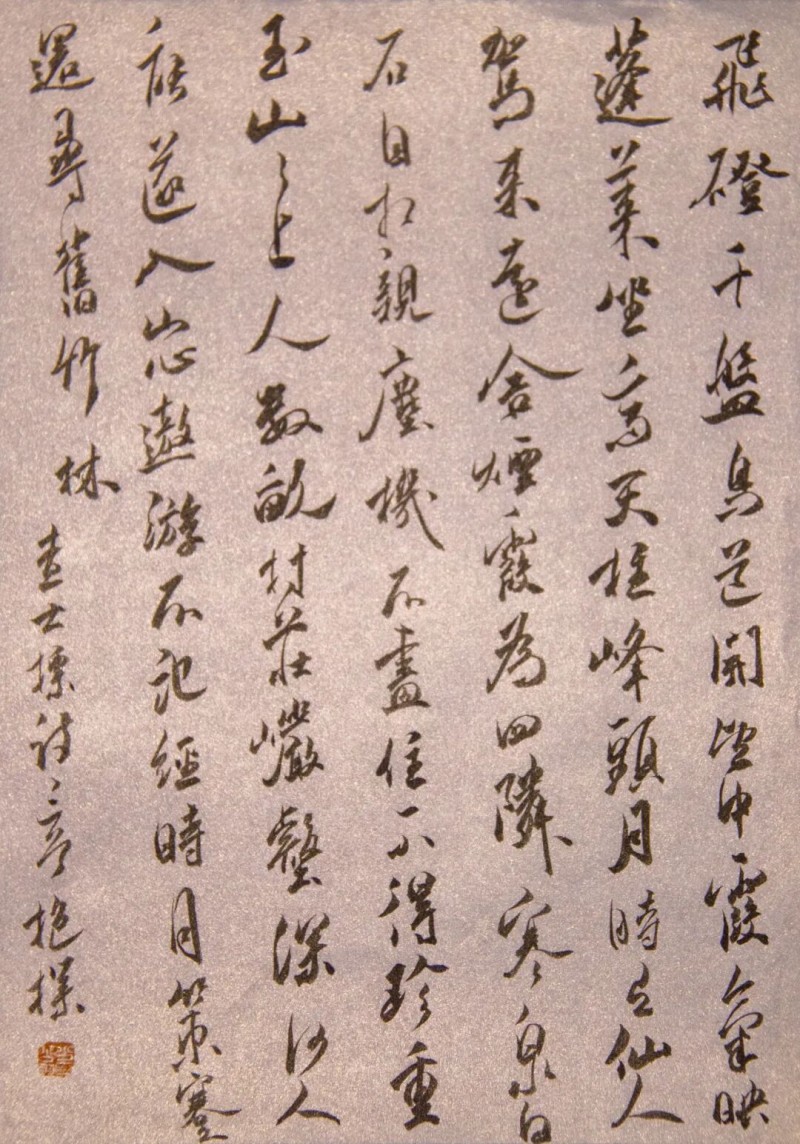 飛磴千盤鳥道開中霞氣映
蓬萊坐高天柱峰頭月時与仙人
駕來遶舍煙霞為四隣寒泉白
石自相親塵機不盡住不得珍重
玉山々上人數畝村莊巖壑深何人
能遂入山心遨游不記經時月策蹇
還尋舊竹林
查士標詩三首抱樸